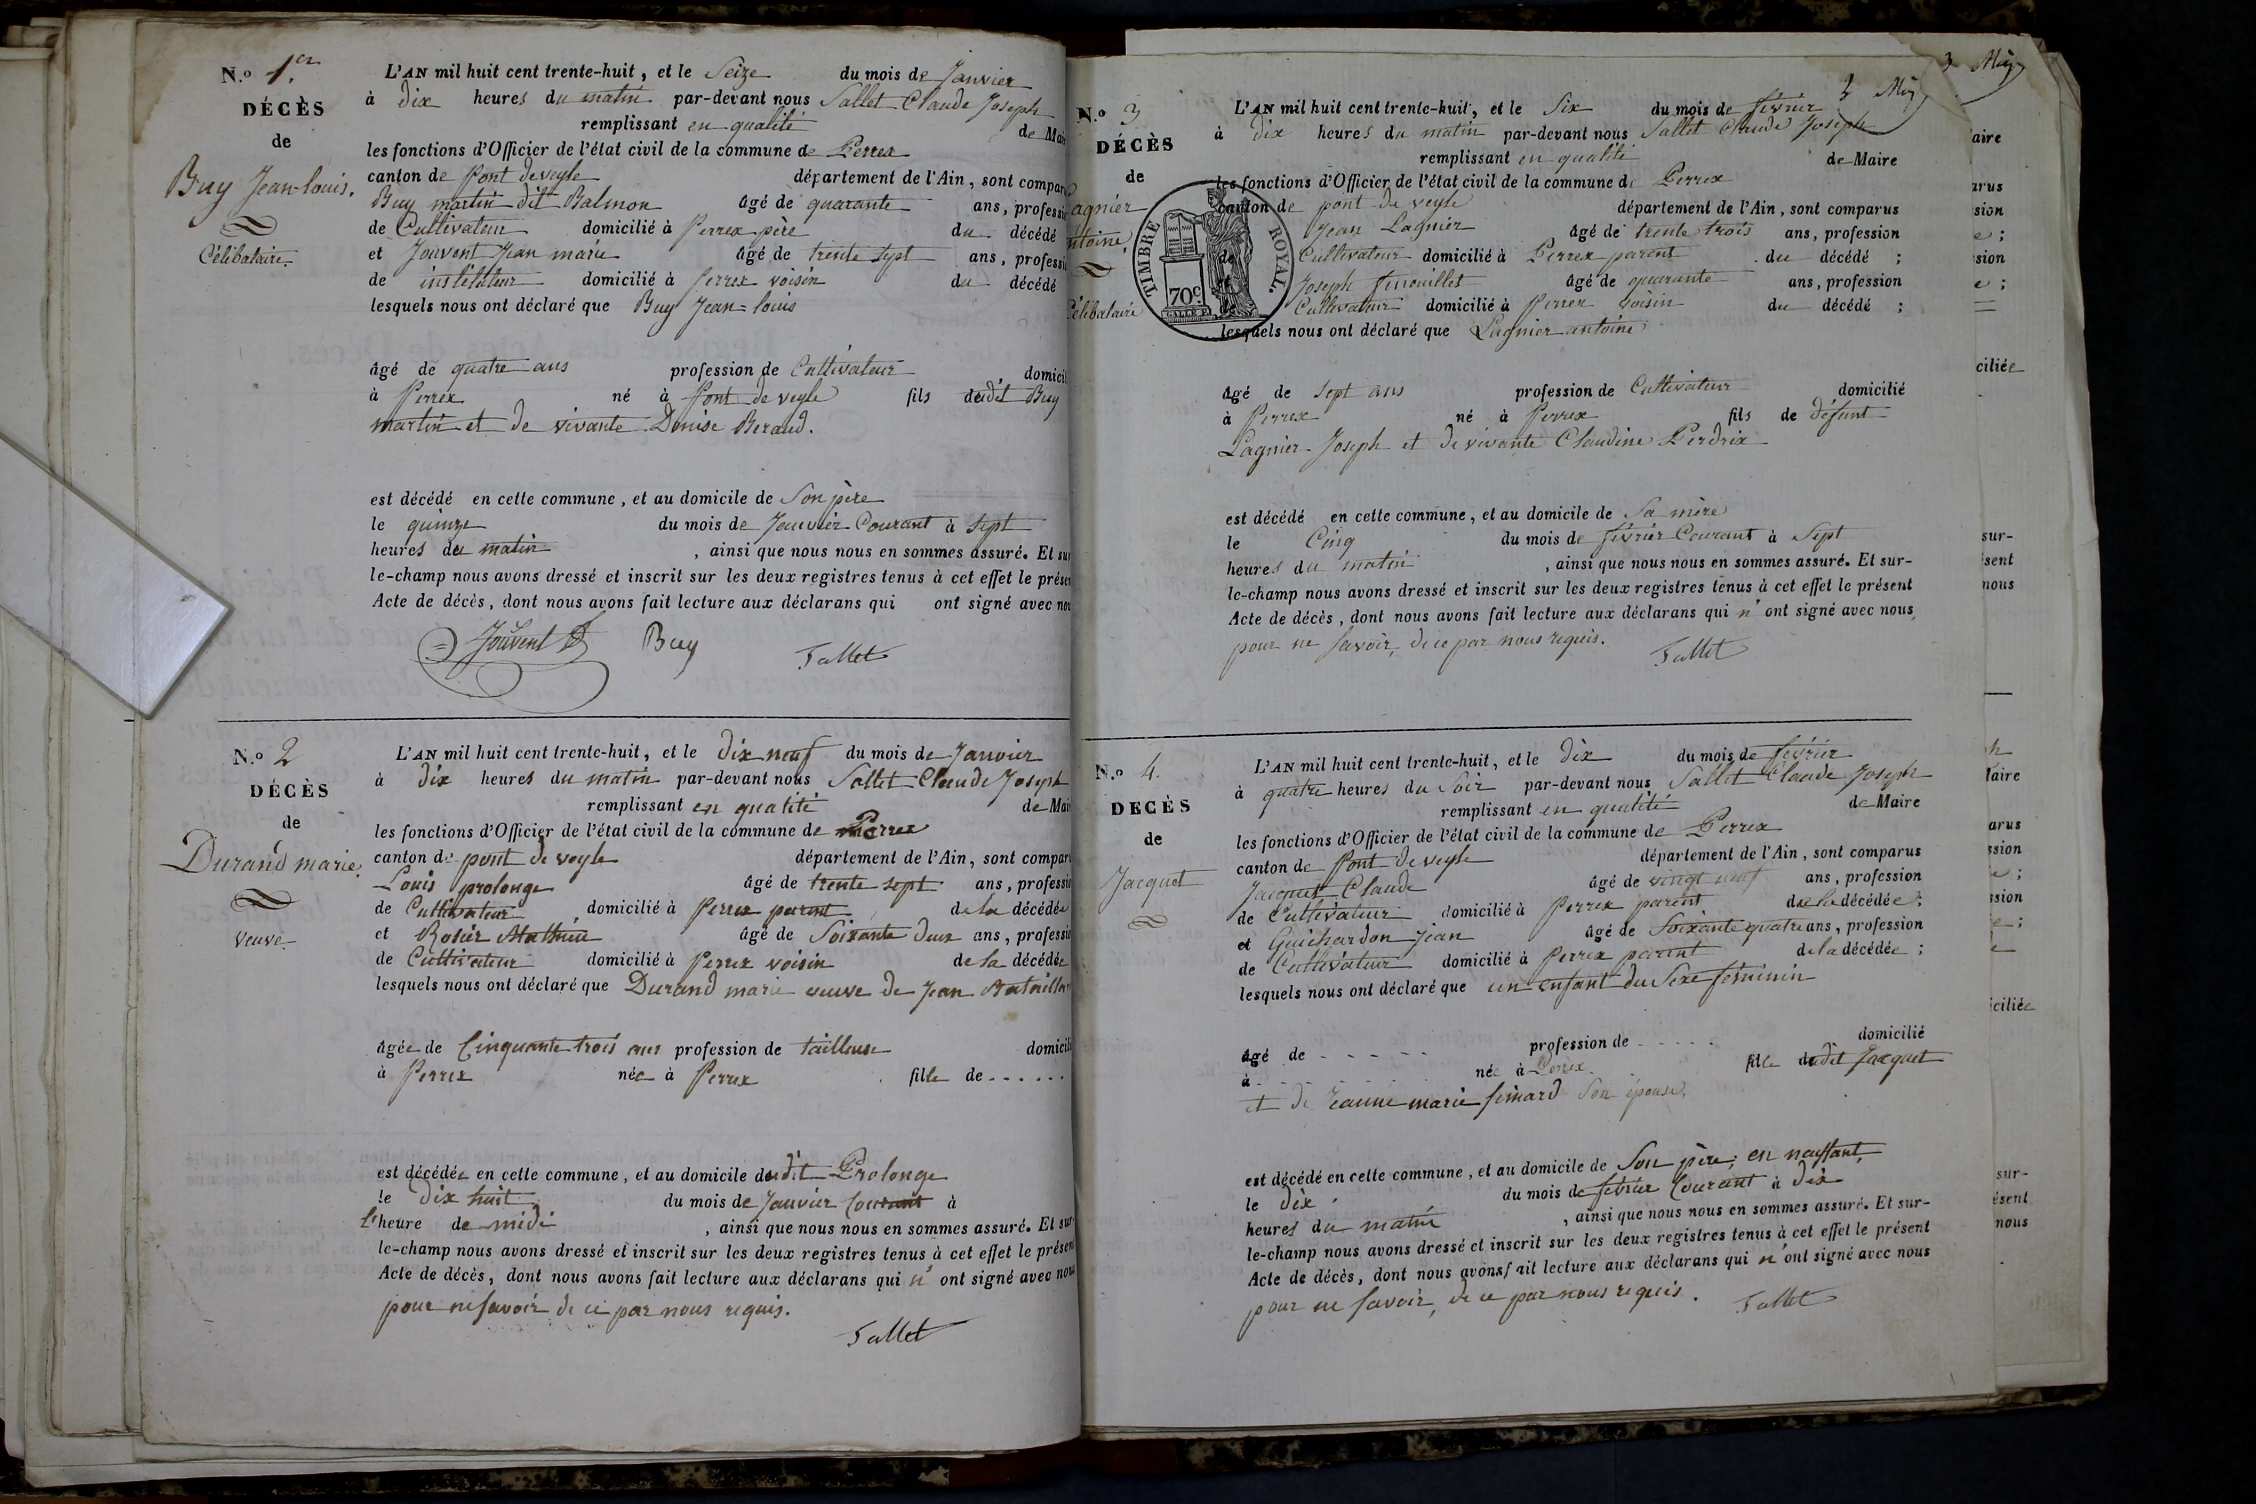 N.o 1er
DÉCÈS
de
Buy Jean-louis.
Célibataire.
L'AN mil huit cent trente-huit, et le Seize du mois de Janvier
à dix heures du matin par-devant nous Sallet Claude Joseph
remplissant en qualité de Mai
les fonctions d'Officier de l'état civil de la commune de Perrex
canton de Pont de veyle département de l'Ain, sont compar
Buy martin dit Balmon âgé de quarante ans, professi
de Cultivateur domicilié à Perrex père du décédé
et Jouvent Jean marie âgé de trente sept ans, professi
de instituteur domicilié à Perrex voisin du décédé
lesquels nous ont déclaré que Buy Jean-louis
âgé de quatre ans profession de Cultivateur domicil
à Perrex né à Pont de veyle fils dudit Buy
martin et de vivante Denise Beraud.
est décédé en cette commune, et au domicile de Son père
le quinze du mois de Janvier Courant à sept
heures du matin, ainsi que nous nous en sommes assuré. Et sur
le-champ nous avons dressé et inscrit sur les deux registres tenus à cet effet le présen
Acte de décès, dont nous avons fait lecture aux déclarans qui ont signé avec nou
Jouvent Buy Sallet
N.o 2
DÉCÈS
de
Durand marie.
Veuve.
L'AN mil huit cent trente-huit, et le dix neuf du mois de Janvier
à dix heures du matin par-devant nous Sallet Claude Joseph
remplissant en qualité de Mai
les fonctions d'Officier de l'état civil de la commune de Perrex
canton de pont de veyle département de l'Ain, sont compar
Louis prolonge âgé de trente sept ans, professi
de Cultivateur domicilié à Perrex parent de la décédée
et Rosier Mathieu âgé de Soixante deux ans, professi
de Cultivateur domicilié à Perrex voisin de la décédée
lesquels nous ont déclaré que Durand marie veuve de Jean
âgée de Cinquante trois ans profession de tailleuse domicili
à Perrex née à Perrex fille de . . . . . .
est décédée en cette commune, et au domicile dudit Prolonge
le dix huit du mois de Janvier Courant à
l'heure de midi, ainsi que nous nous en sommes assuré. Et sur
le-champ nous avons dressé et inscrit sur les deux registres tenus à cet effet le présen
Acte de décès, dont nous avons fait lecture aux déclarans qui n'ont signé avec nou
pour ne savoir de ce par nous requis.
Sallet
3 Mig
3 Mig
N.o 3
DÉCÈS
de
agnier
ntoine
Célibataire
TIMBRE ROYAL.
70c
L'AN mil huit cent trente-huit, et le Six du mois de février
à dix heures du matin par-devant nous Sallet Claude Joseph
remplissant en qualité de Maire
les fonctions d'Officier de l'état civil de la commune de Perrex
canton de pont de veyle département de l'Ain, sont comparus
Jean Lagnier âgé de trente trois ans, profession
de Cultivateur domicilié à Perrex parent du décédé ;
et Joseph âgé de quarante ans, profession
de Cultivateur domicilié à Perrex voisin du décédé ;
lesquels nous ont déclaré que Lagnier antoine
âgé de sept ans profession de Cultivateur domicilié
à Perrex né à Perrex fils de défunt
Lagnier Joseph et de vivante Claudine Perdrix
est décédé en cette commune, et au domicile de Sa mère
le Cinq du mois de février Courant à Sept
heures du matin, ainsi que nous nous en sommes assuré. Et sur-
le-champ nous avons dressé et inscrit sur les deux registres tenus à cet effet le présent
Acte de décès, dont nous avons fait lecture aux déclarans qui n'ont signé avec nous,
pour ne savoir, de ce par nous requis.
Sallet
N.o 4.
DÉCÈS
de
Jacquet
L'AN mil huit cent trente-huit, et le dix du mois de février
à quatre heures du Soir par-devant nous Sallet Claude Joseph
remplissant en qualité de Maire
les fonctions d'Officier de l'état civil de la commune de Perrex
canton de Pont de veyle département de l'Ain, sont comparus
Jacquet Claude âgé de vingt neuf ans, profession
de Cultivateur domicilié à Perrex parent de la décédée ;
et Guichardon Jean âgé de Soixante quatre ans, profession
de Cultivateur domicilié à Perrex parent de la décédée ;
lesquels nous ont déclaré que un enfant du Sexe féminin
âgé de - - - - - profession de - - - - - domicilié
à - - - - - née à Perrex fille dudit Jacquet
et de Jeanne marie Simard Son épouse,
est décédé en cette commune, et au domicile de Son père, en naissant,
le dix du mois de février Courant à dix
heures du matin, ainsi que nous nous en sommes assuré. Et sur-
le-champ nous avons dressé et inscrit sur les deux registres tenus à cet effet le présent
Acte de décès, dont nous avons fait lecture aux déclarans qui n'ont signé avec nous
pour ne savoir, de ce par nous requis.
Sallet